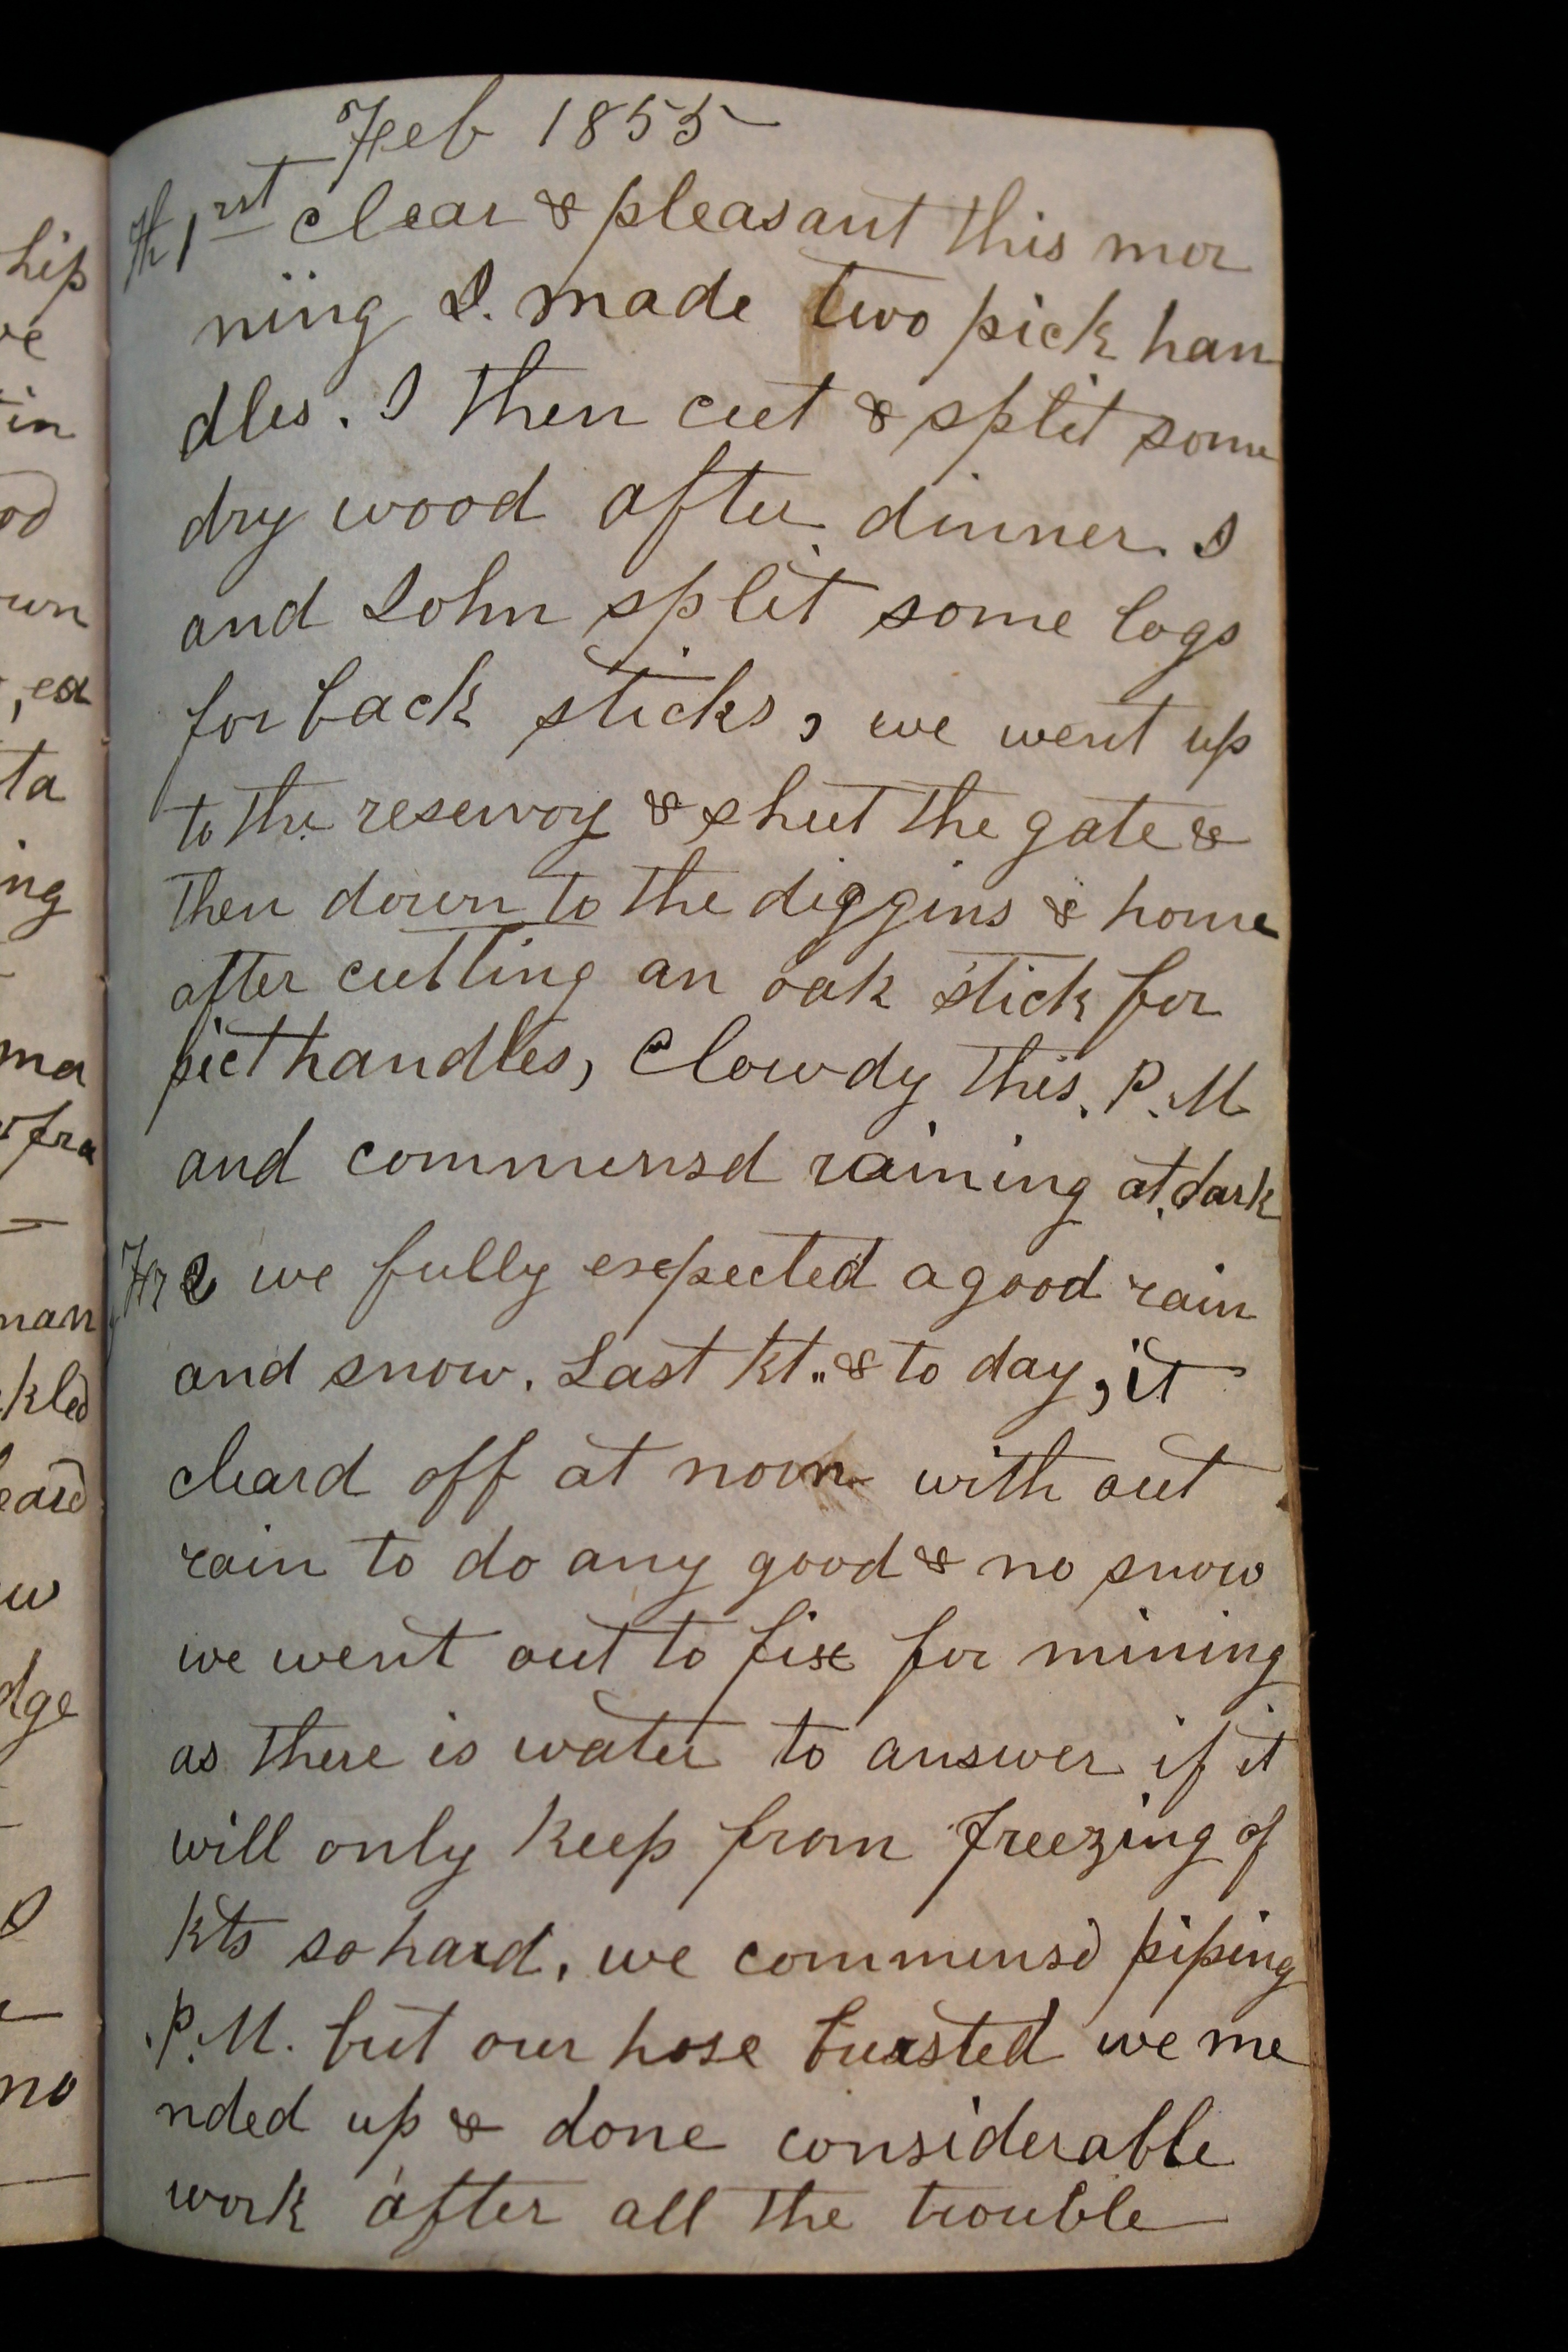 Feb 1855
Th 1rst clear & pleasant this mor
niing I. made two pick han
dles. I then cut & split some
dry wood after dinner. I
and John split some logs
for back sticks, we went up
to the reservoy & shut the gate &
then down to the diggins & home
after cutting an oak stick for
pict handles, Clowdy this. P.M
and commensd raining at dark
Fr 2 we fully expected a good rain
and snow. Last Kt.. & to day, it
cleard off at noon with out
rain to do any good & no snow
we went out to fix for mining
as there is water to answer if it
will only keep from freezing of
Kts so hard. we commensd piping
P.M. but our hose bursted we me
nded up & done considerable
work after all the trouble
hip
ve
in
od
own
ta
ing
ma
fra
man
kled
eard
w
dge
I
no